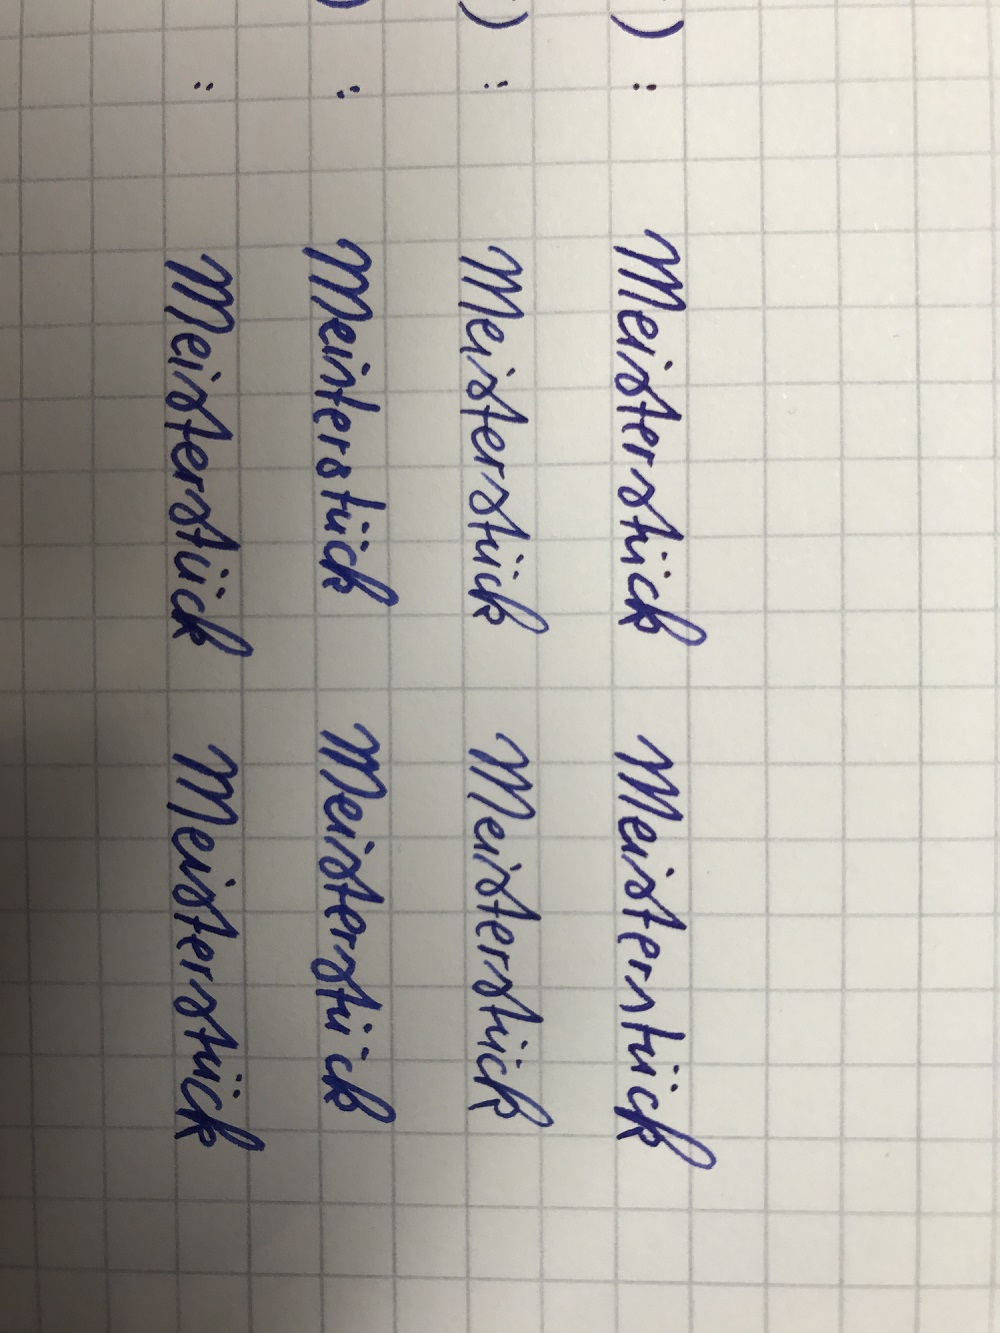 ) : Meisterstück Meisterstück
) : Meisterstück Meisterstück
) : Meinterstück Meisterstück
: Meisterstück Meisterstück